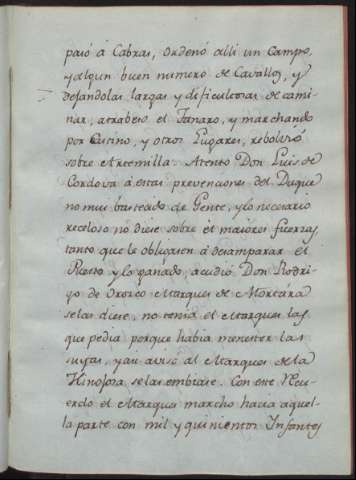 pasó á Cabras, ordenó alli un Campo,
y algun buen numero de Cavallos, y
dejandolas largas y dificultosas de cami-
nar, atrabesó el Tanaro, y marchando
por Cusino, y otros Lugares, rebolvió
sobre Artemilla. Atento Don Luis de
Cordova á estas prevenciones del Duque
no mui basteado de Gente, y lo necesario
receloso no diese sobre él maiores fuerzas,
tanto que le obligasen á desamparar el
Puesto y lo ganado, acudió Don Rodri-
go de Orozco Marques de Mortára
se las diese, no tenia el Marques las
que pedia porque habia menester las
suyas, y asi avisó al Marques de la
Hinojosa se las embiase. Con este Acu-
erdo el Marques marcho hacia aquel-
la parte con mil y quinientos Infantes